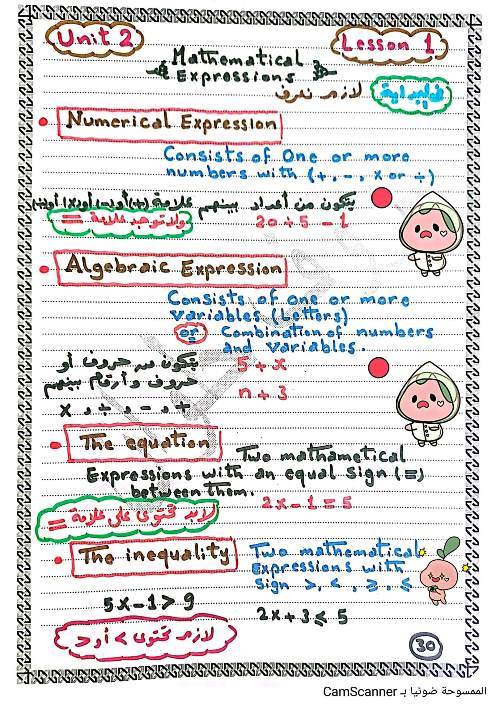 Unit 2
Lesson 1
Mathematical
Expressions
في البداية
لازم نعرف
Numerical Expression
Consists of One or more
numbers with (+, -, x or ÷)
يتكون من أعداد بينهم علامة (+) أو (-) أو (x) أو (÷)
ولا توجد علامة =
20 ÷ 5 - 1
Algebraic Expression
Consists of one or more
Variables (Letters)
or Combination of numbers
and variables.
يتكون من حروف أو
حروف وأرقام بينهم
x , ÷ , - , +
5 + x
n + 3
The equation
Two mathametical
Expressions with an equal sign (=)
between them.
2x - 1 = 5
لابد تحتوى على علامة =
The inequality
Two mathematical
Expressions with
Sign >, <, ≥, ≤
5x - 1 > 9
2x + 3 ≤ 5
لازم تحتوى > أو <
30
الممسوحة ضوئيا بـ CamScanner